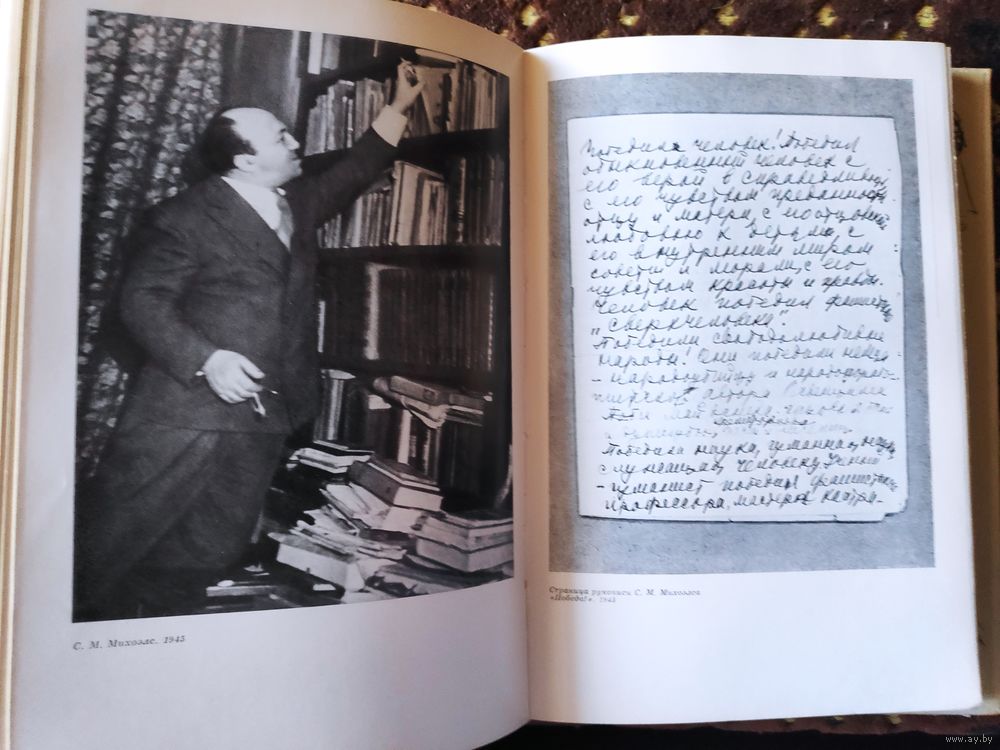 С. М. Михоэлс. 1945
Победил человек! Победил
обыкновенный человек с
его верой в справедливость,
с его чувством преданности
отцу и матери, с его отцовской
любовью к детям, с
его внутренним миром
совести и морали, с его
чувством красоты и правды.
Человек победил фашистск.
"сверхчеловека".
Победили свободолюбивые
народы! Они победили
-народоубийцу и
автора
Победила наука, гуманная, наука
служащая человеку. Ученый
-гуманист победил фашистского
профессора, мастера
Страница рукописи С. М. Михоэлса
«Победа!». 1945
www.ay.by